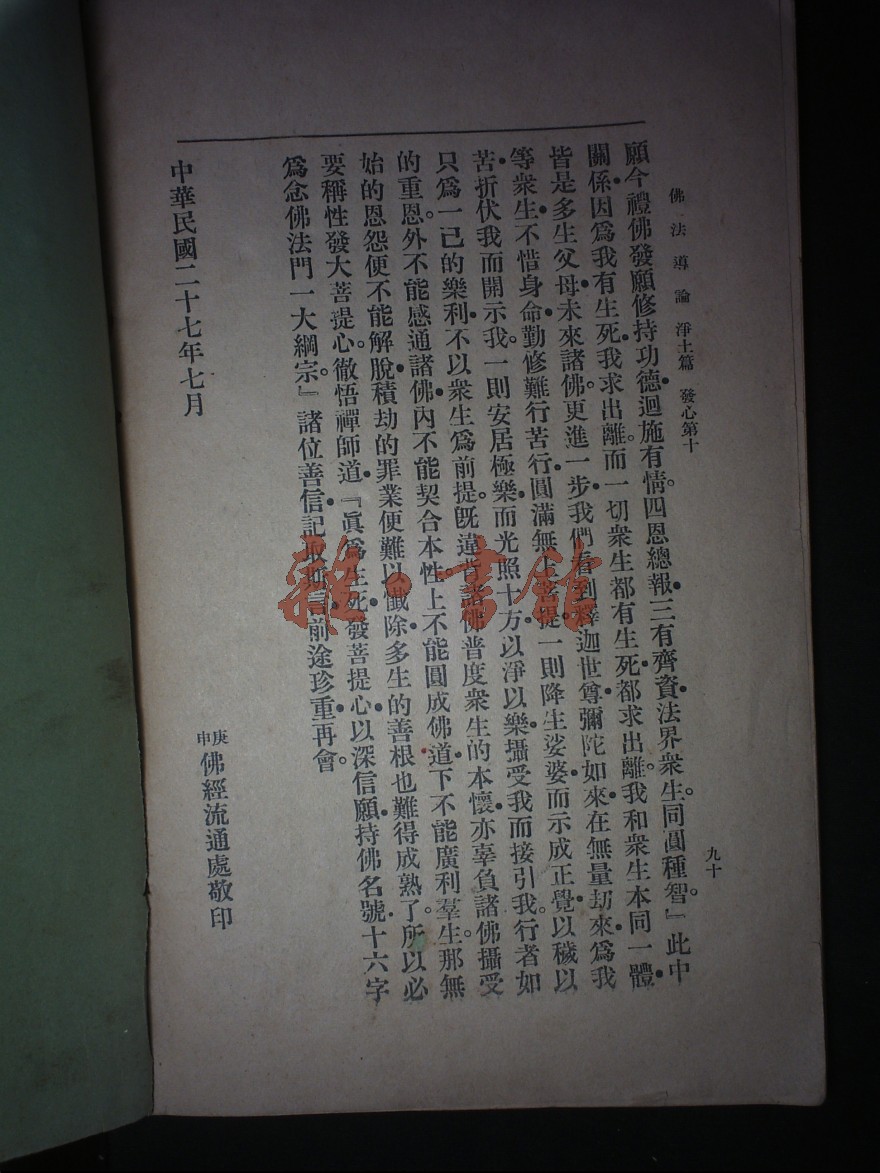 佛法導論 淨土篇 發心第十
九十
願今禮佛發願修持功德•迴施有情。四恩總報•三有齊資•法界衆生。同圓種智。』此中
關係•因爲我有生死•我求出離•而一切衆生都有生死•都求出離。我和衆生本同一體•
皆是多生父母•未來諸佛。更進一步•我們看到釋迦世尊•彌陀如來•在無量劫來•爲我
等衆生•不惜身命•勤修難行苦行•圓滿無上菩提•一則降生娑婆•而示成正覺•以穢以
苦•折伏我而開示我。一則安居極樂•而光照十方•以淨以樂•攝受我而接引我。行者如
只爲一己的樂利•不以衆生爲前提。旣違背諸佛普度衆生的本懷•亦辜負諸佛攝受
的重恩。外不能感通諸佛•內不能契合本性。上不能圓成佛道•下不能廣利羣生。那無
始的恩怨•便不能解脫•積劫的罪業•便難以懺除•多生的善根•也難得成熟了。所以必
要稱性發大菩提心。徹悟禪師道•『眞爲生死•發菩提心•以深信願•持佛名號•十六字
爲念佛法門一大綱宗。』諸位善信•記取斯言•前途珍重•再會。
中華民國二十七年七月
庚申佛經流通處敬印
雜•書館